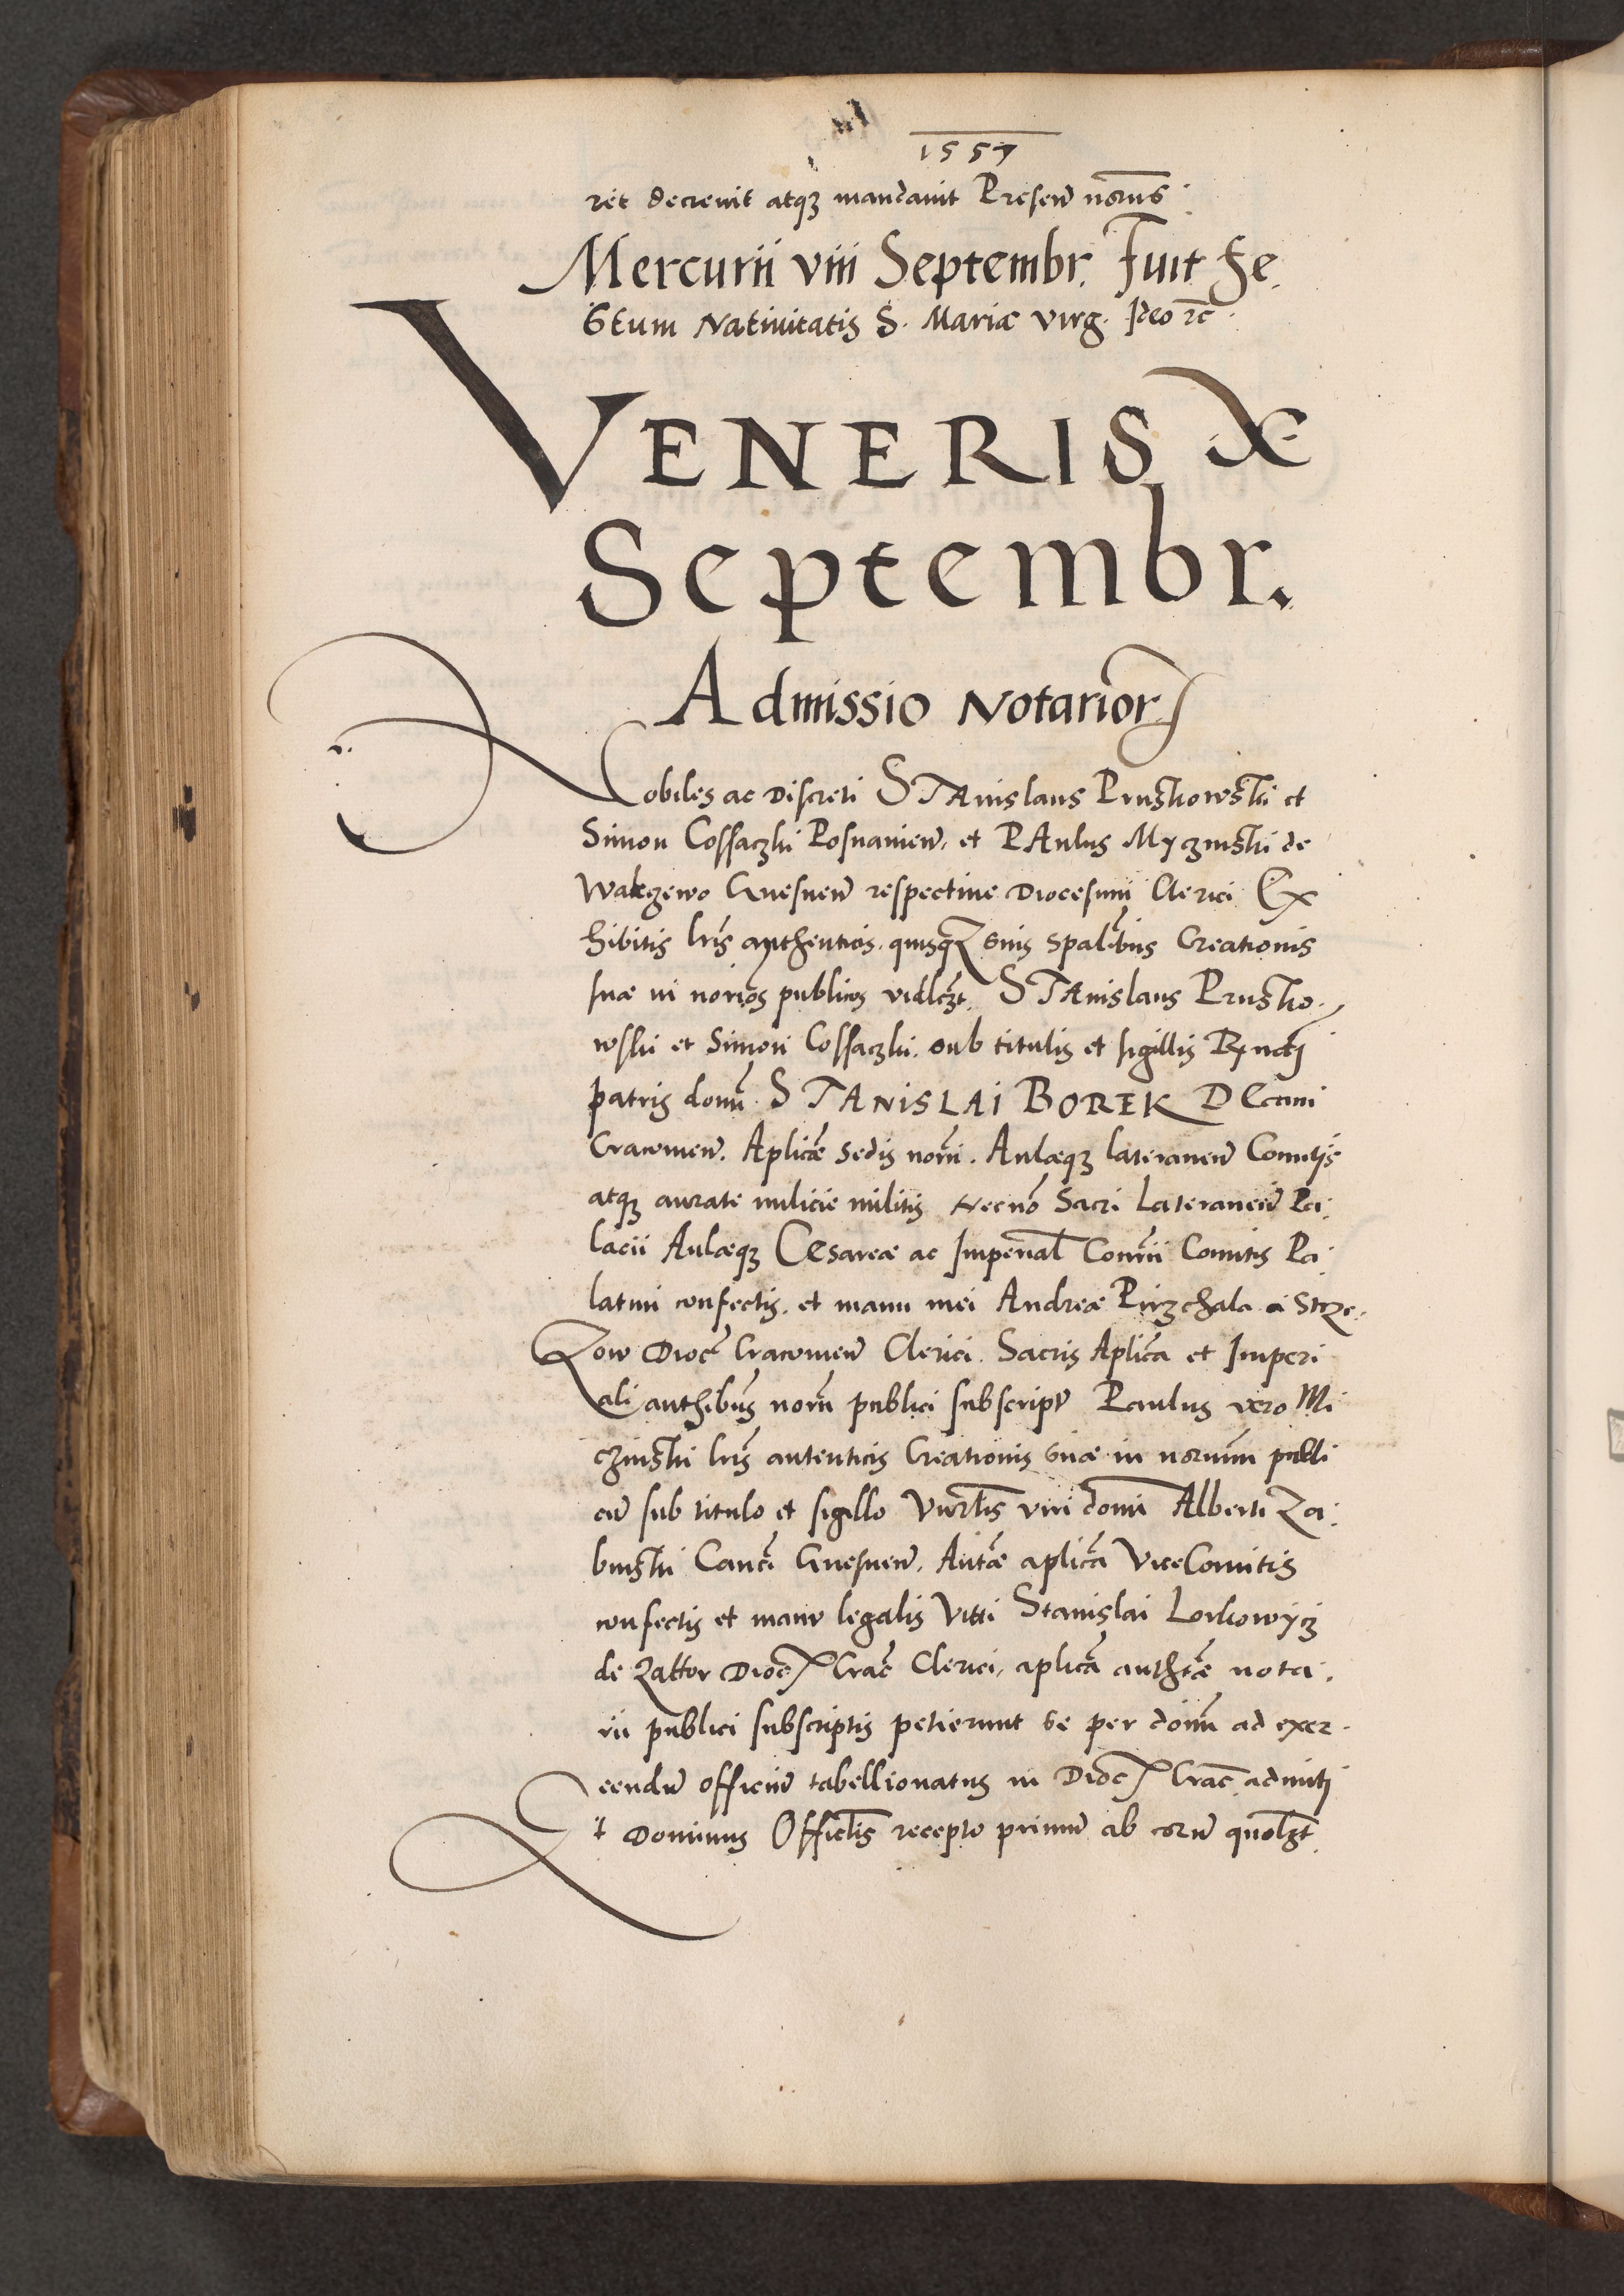 1557
ret decrevit atq3 mandavit Presen norus.
Mercurii viii Septembr. Fuit Fe
stum Nativitatis S. Mariæ virg. Ideo rc.
VENERIS X
Septembr.
Admissio Notarior
Nobiles ac Discreti STAnislaus Pruskowski et
Simon Cossaczki Posnanien, et PAulus Myczinski de
Gnesnen respective Diocesum Clerici Ex
hibitis lris authenticis, suis Creationis
suæ in norios publicos vidlczt. STAnislaus Prusko
wski et Simon Cossaczki. sub titulis et sigillis Rndi
patris domi STANISLAI BOREK DEcani
Cracovien. Aplicæ Sedis norii. Aulæq3 lateranen Comitis
atq3 aurate milicie militis Necno Sacri Lateranen Pa
lacii Aulæq3 CEsareæ ac Imperial Comitis Pa
latini confectis. et manu mei Andreæ Pirzchala a Strze
zow Dioc Cracovien Clerici. Sacris Aplica et Imperi
ali authibus norii publici subscript Paulus vero Mi
czinski lris autenticis Creationis suæ in norium publi
cu sub titulo et sigillo viri domi Alberti Za
binski Canci Gnesnen. aplica ViceComitis
confectis et manu legalis Stanislai Lorkowicz
de Zattor Dioc Crac Clerici, aplica authtæ nota
rii publici subscriptis petierunt se per domu ad exer
cendu officiu tabellionatus in Dioc Crac admitti
Et Dominus Offictis recepto primu ab eoru quolzt